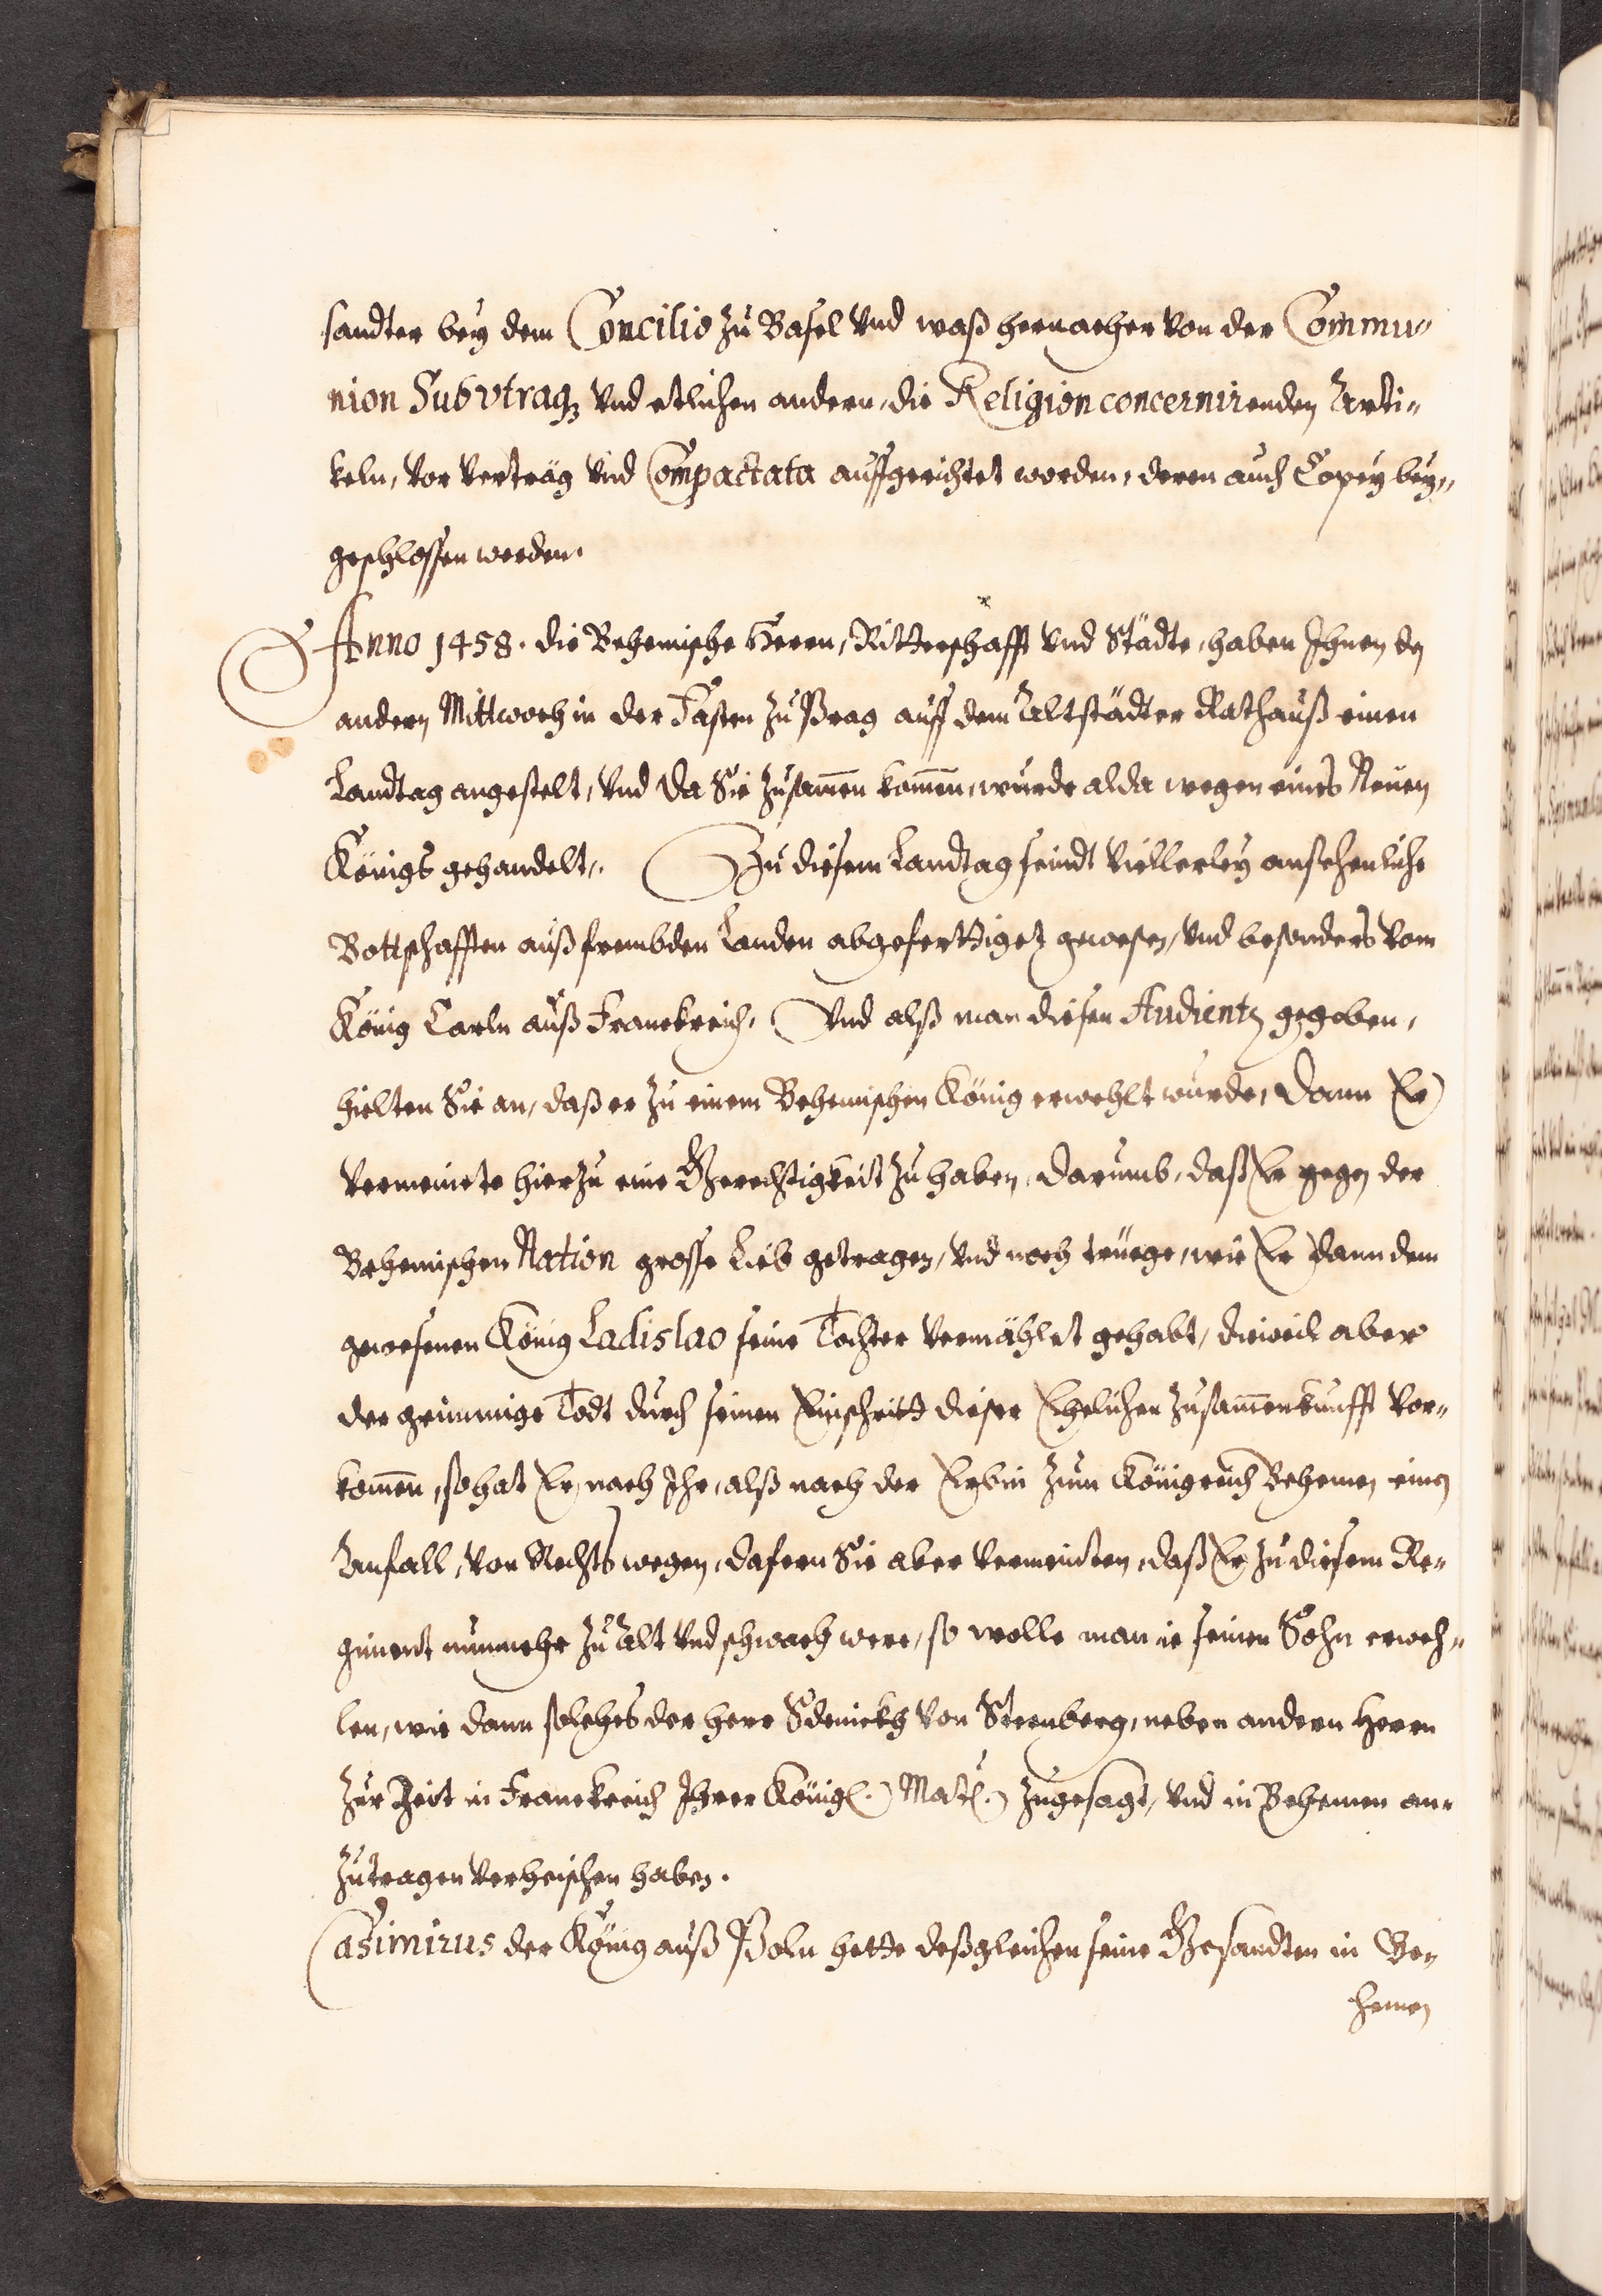 sandter bey dem Concilio zu Basel vnd waß hernacher von der Commu-
nion Sub vtraqȝ vnd etlichen andern, die Religion concernirenden Arti-
keln, vor Verträg vnd Compactata auffgerichtet worden, deren auch Copey bey-
geschlossen werden.
Anno 1458. die Behemische Herrn, Ritterschafft vnd Städte, haben Ihnen den
andern Mittwoch in der Fasten zu Prag auff dem Altstädter Rathauß einen
Landtag angestelt, vnd da Sie zusam̄en kom̄en, wurde alda wegen eines Neuen
Königs gehandelt. Zu diesem Landtag seindt viellerley ansehenliche
Bottschafften auß frembden Landen abgeferttiget gewesen, vnd besonders vom
König Carln auß Franckreich, Vnd alß man diesen Audientz gegeben,
hielten Sie an, daß er zu einem Behemischen König erwehlt wurde, dann Er
vermeinete hierzu eine Gerechtigkeit zu haben, darumb, daß Er gegen der
Behemischen Nation grosse Lieb getragen, vnd noch trüege, wie Er dann dem
gewesenen König Ladislao seine Tochter vermählet gehabt, dieweil aber
der grimmige Todt durch seinen Einschritt dieser Ehelichen Zusam̄enkunfft vor-
kom̄en, so hat Er nach Ihr, alß nach der Erbin zum Königreich Behemen einen
Anfall, von Rechts wegen, dafern Sie aber vermeinten, daß Er zu diesem Re-
giment nunmehr zu Alt vnd schwach were, so wolle man ie seinen Sohn erweh-
len, wie dann solches der Herr Sdenickh von Sternberg, neben andern Herrn
zur Zeit in Franckreich Ihrer Königl. Matl. zugesagt, vnd in Behemen an-
zutragen verheischen haben.
Casimirus der König auß Poln hette deßgleichen seine Gesandten in Be-
hemen